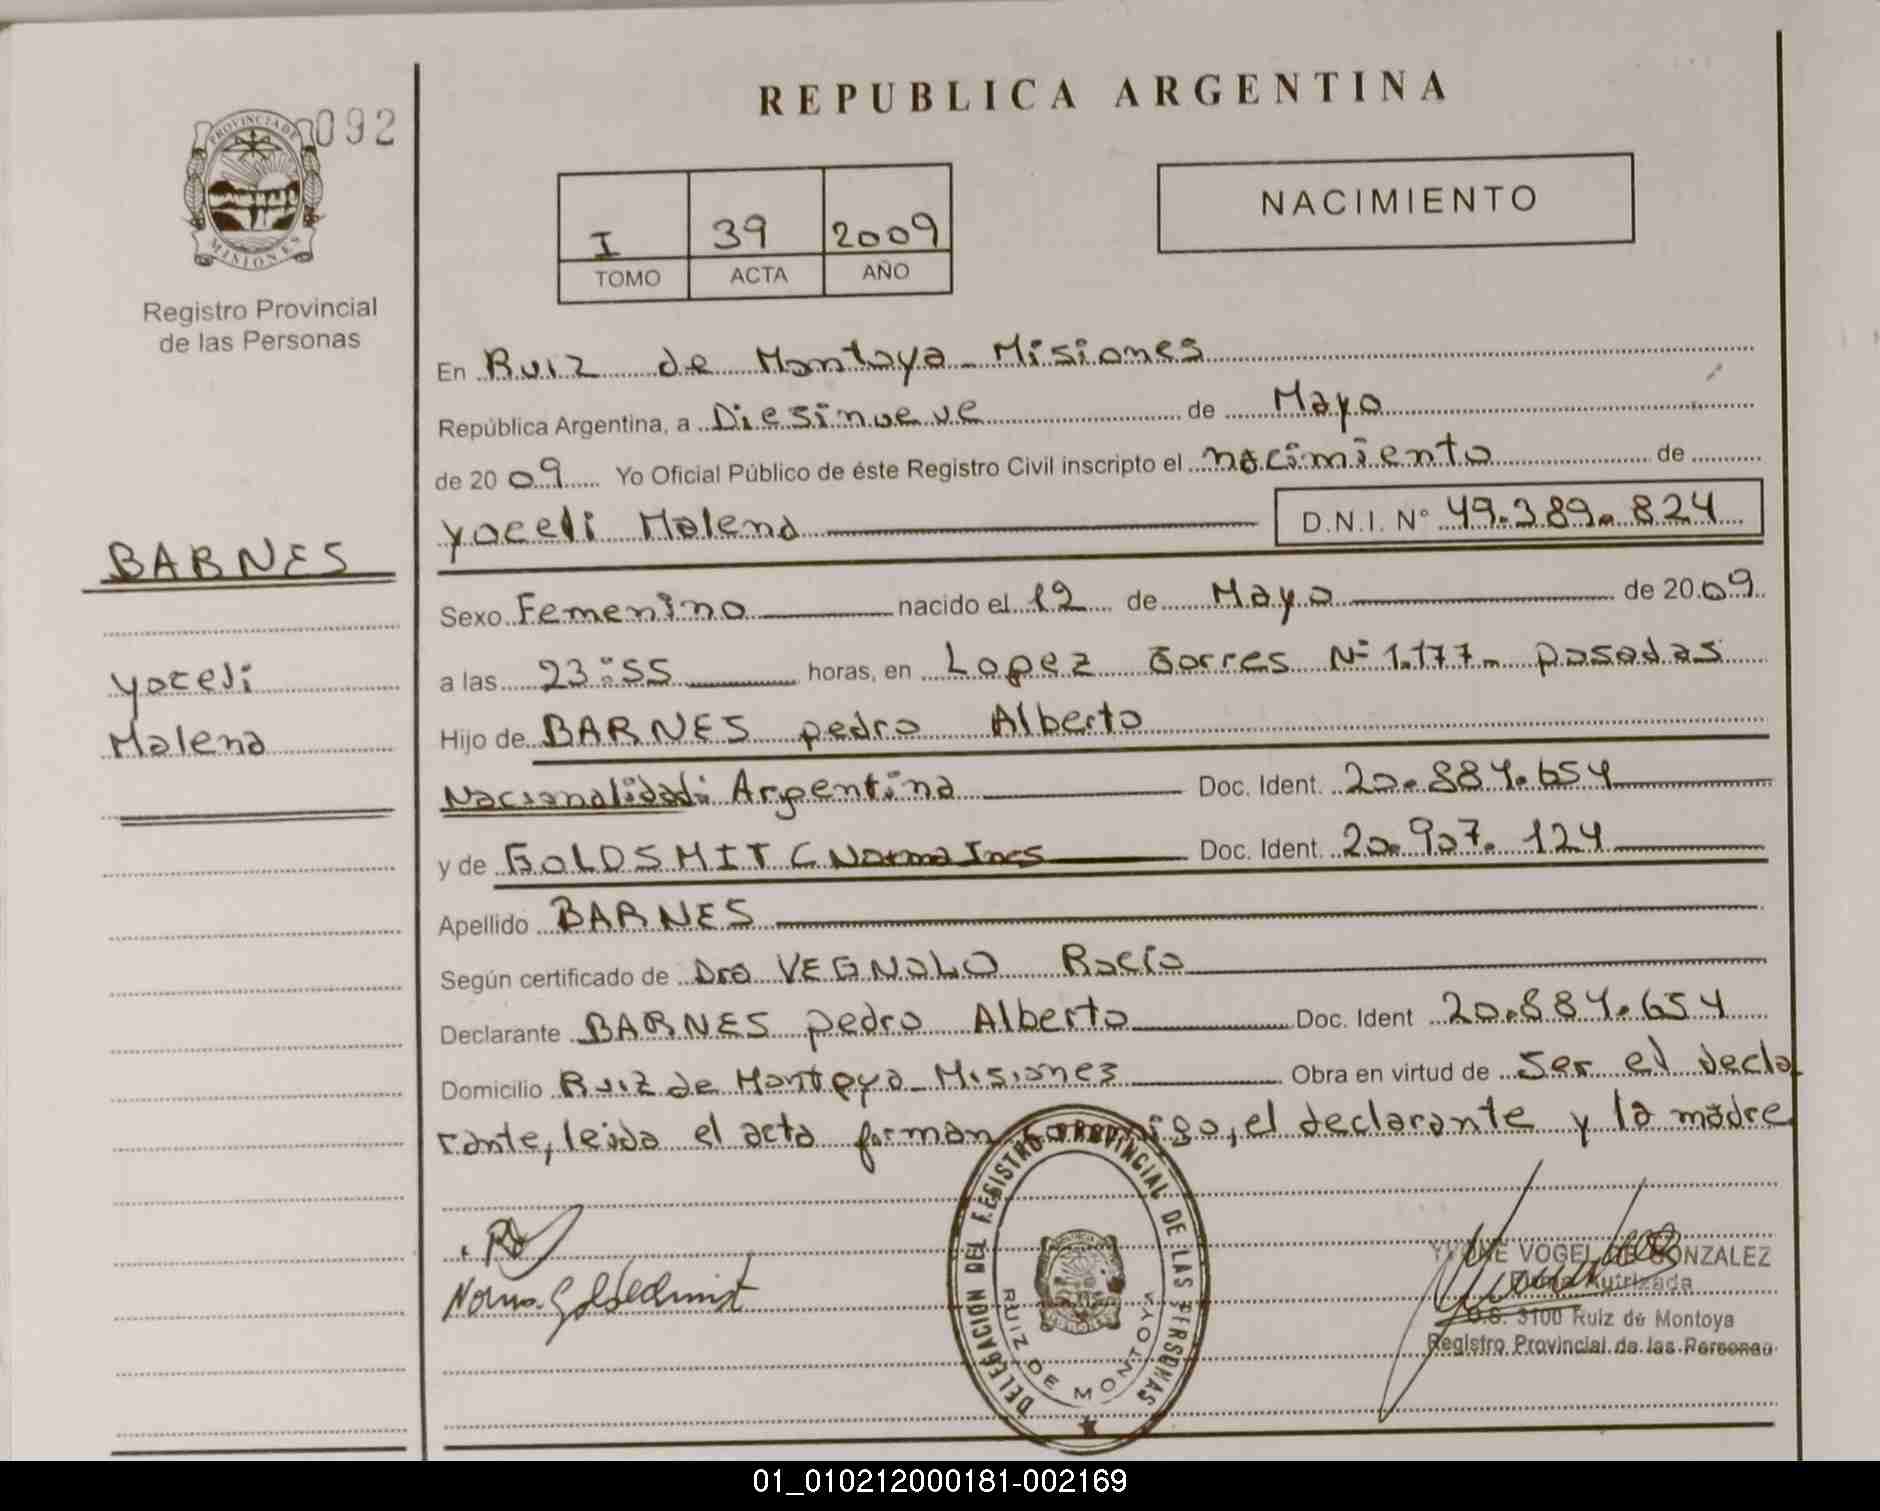 REPUBLICA ARGENTINA
PROVINCIA DE
MISIONES
092
Registro Provincial
de las Personas
I 39 2009
TOMO ACTA AÑO
NACIMIENTO
En Ruiz de Montoya - Misiones
República Argentina, a Diesinueve de Mayo
de 2009 Yo Oficial Público de éste Registro Civil inscripto el nacimiento de
Yoceli Malena D.N.I. N° 49.389.824
BARNES
Yoceli
Malena
Sexo Femenino nacido el 12 de Mayo de 2009
a las 23:55 horas, en Lopez Torres N° 1.177 - posadas
Hijo de BARNES pedro Alberto
Nacionalidad: Argentina Doc. Ident. 20.884.654
y de GOLDSMIT C Norma Ines Doc. Ident. 20.907.124
Apellido BARNES
Según certificado de Dra VEGNOLO Rocío
Declarante BARNES pedro Alberto Doc. Ident 20.884.654
Domicilio Ruiz de Montoya - Misiones Obra en virtud de Ser el decla
rante, leida el acta forman conmigo, el declarante y la madre
DELEGACION DEL REGISTRO PROVINCIAL DE LAS PERSONAS
RUIZ DE MONTOYA
Norma
YVONE VOGEL DE GONZALEZ
Firma Autrizada
D.S. 3100 Ruiz de Montoya
Registro Provincial de las Personas
01_010212000181-002169